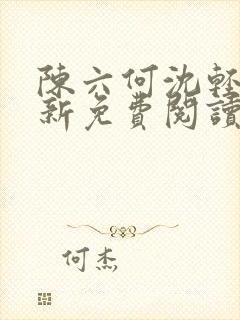 陳六何沈輕
新免費閱讀
何杰